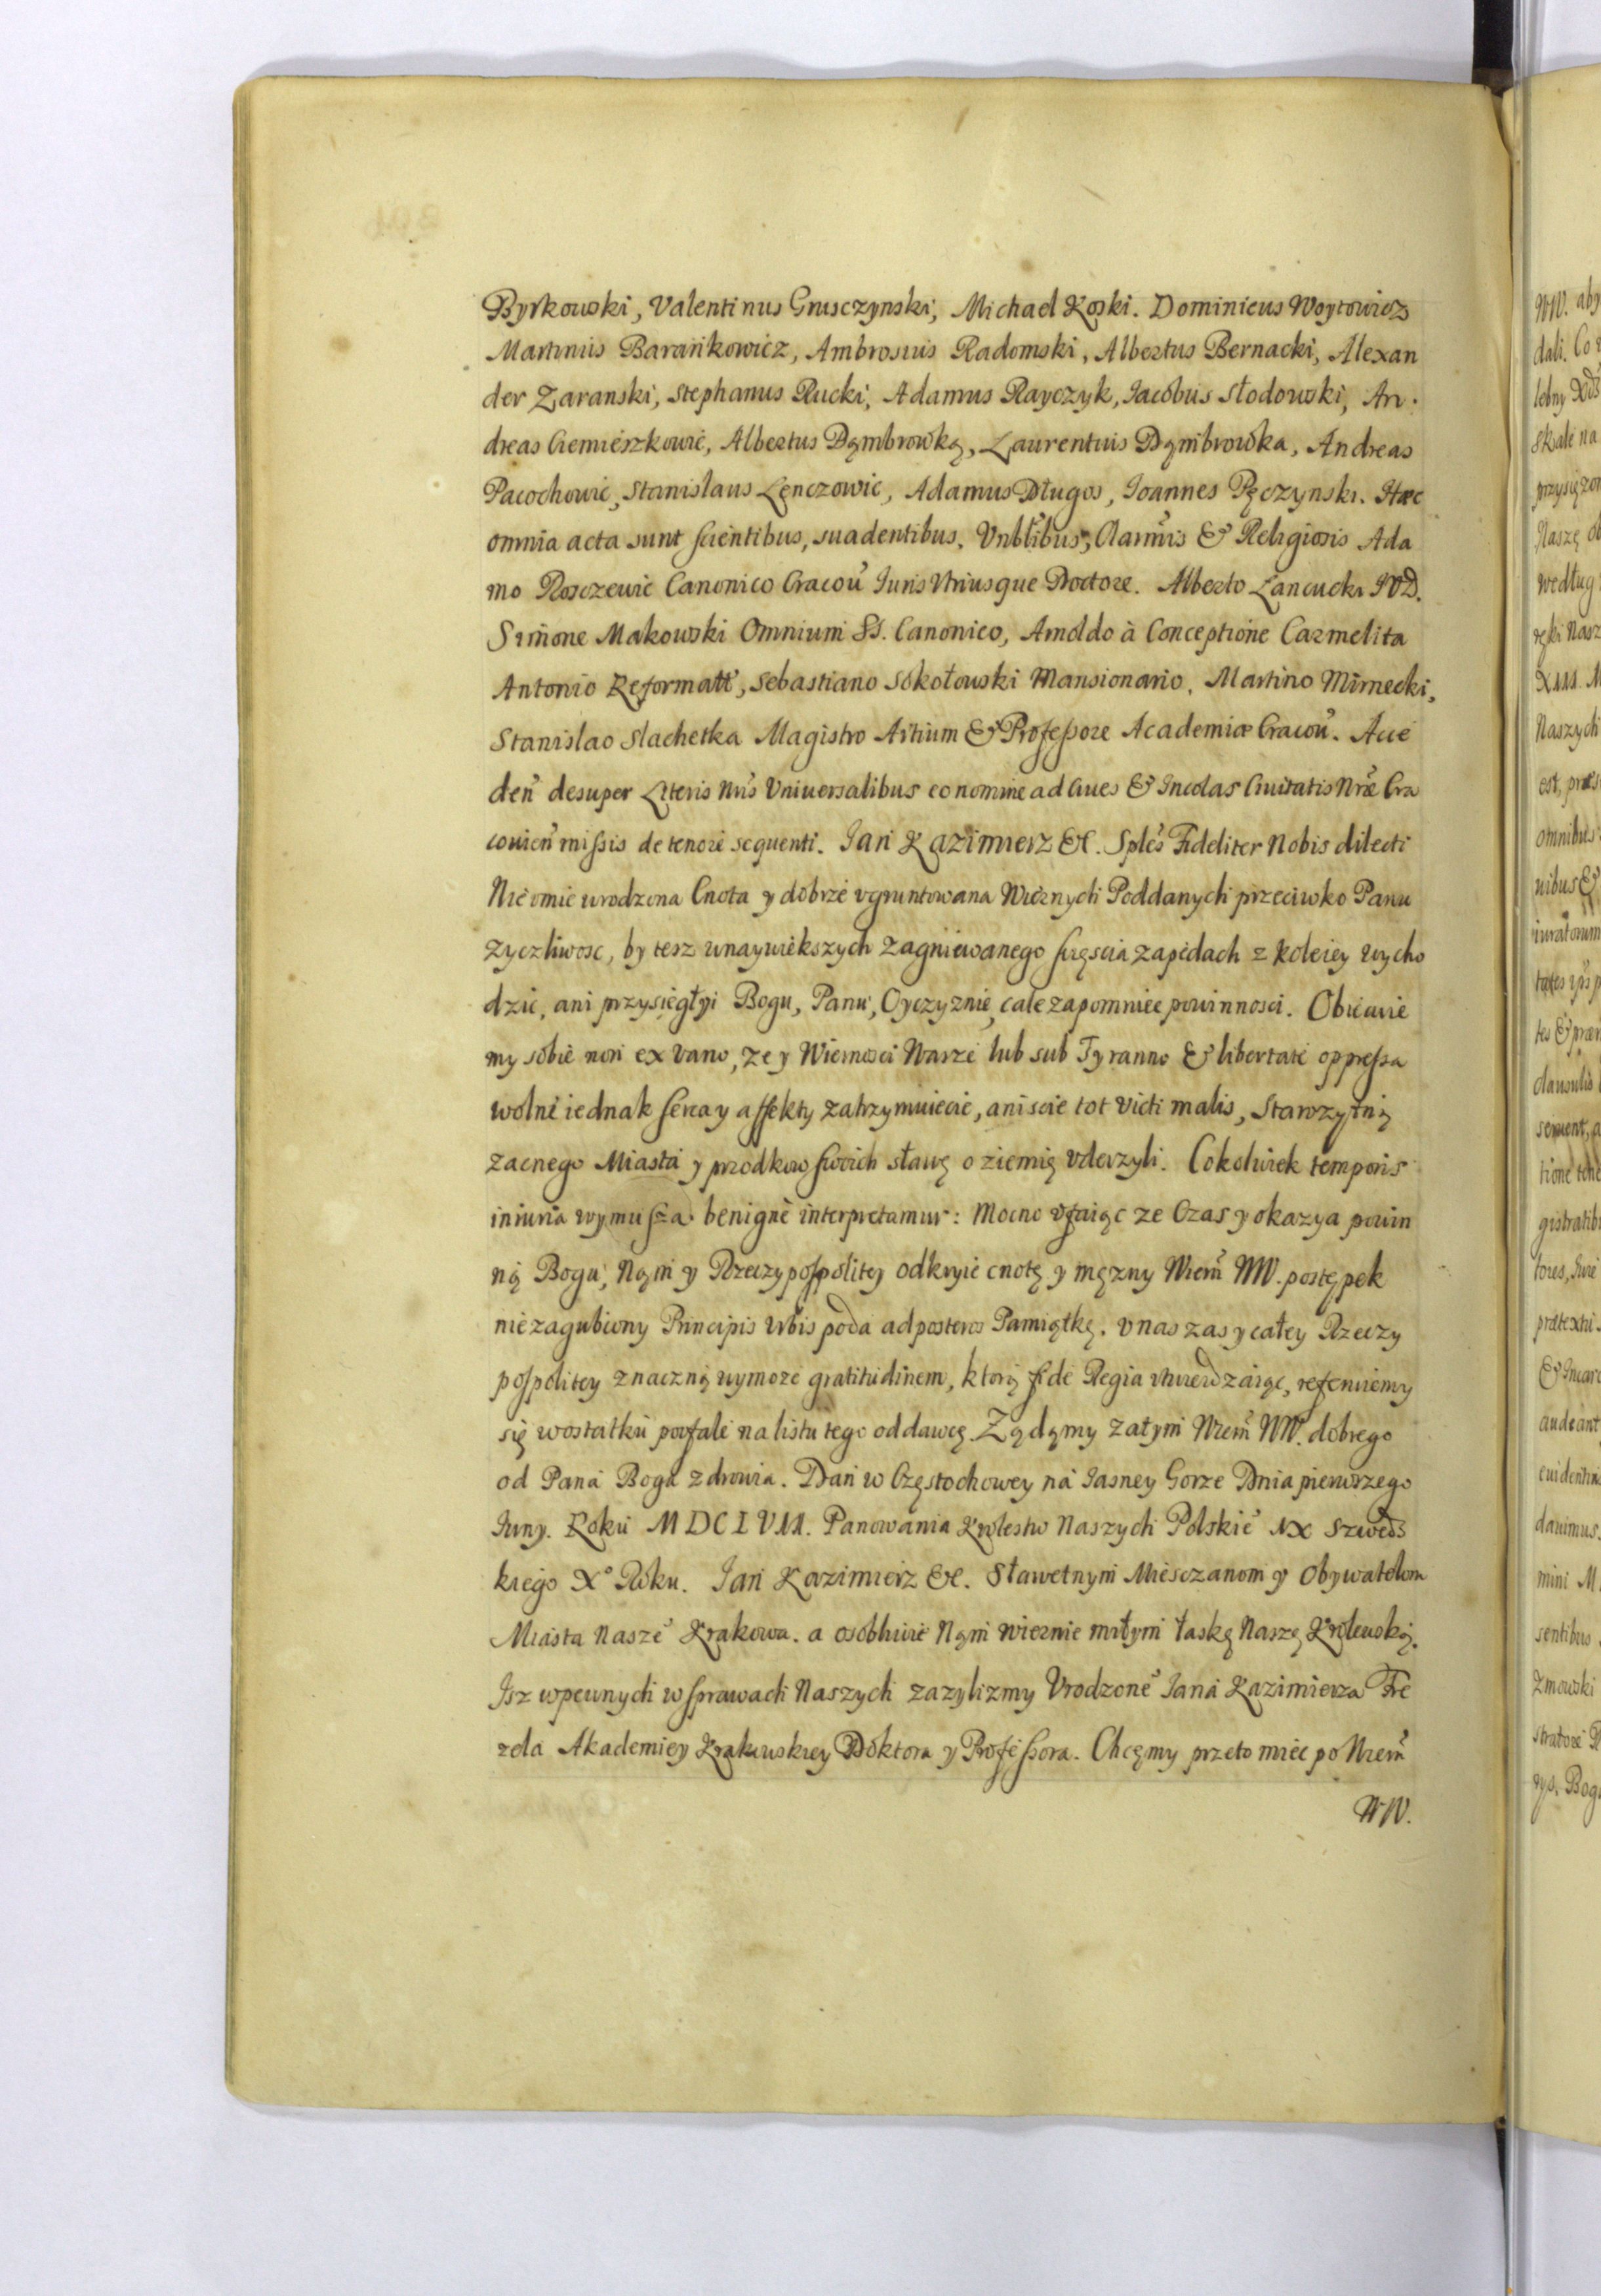 Byſkowski, Valentinus Grusczynski, Michael Koski. Dominicus Woytowicz
Martinus Barańkowicz, Ambrosius Radomski, Albertus Bernacki, Alexan
der Zaranski, Stephanus Rucki, Adamus Rayczyk, Iacobus Słodowski, An.
dreas Ciemierzkowic, Albertus Dąmbrowką, Laurentius Dąmbrowka, Andreas
Pacochowic, Stanislaus Lęnczowic, Adamus Długos, Ioannes Pęczynski. Hæc
omnia acta sunt ſcientibus, suadentibus, Vnbłibus, Clarm̃is & Religiosis Ada
mo Rosczewic Canonico Cracou̓ Iuris Vtriusque Doctore. Alberto Lancucki IVD.
Simone Makowski Omnium SS. Canonico, Arnoldo à Conceptione Carmelita
Antonio Reformatt, Sebastiano Sokołowski Mansionario, Martino Mirnecki,
Stanislao Slachetka Magistro Artium & Profeſsore Academiæ Cracou̓. Acce
den̓ desuper Literis Nr̃is Vniuersalibus eo nomine ad Ciues & Incolas Ciuitatis Nræ Cra
couien̓ miſsis de tenore sequenti. Jan Kazimierz &c. Sples̃ Fideliter Nobis dilecti
Nie omie urodzona Cnota y dobrze vgruntowana Wiernych Poddanych przeciwko Panu
zyczliwosc, by tesz wnaywiększych zagniewanego ſzęscia zapędach z koleiey wycho
dzic, ani przysięgłyi Bogu, Panu, Oyczyznie, cale zapomniec powinnosci. Obiecuie
my sobie non ex vano, ze y Wiernosci Wasze lub sub Tyranno & libertate oppreſsa
wolne iednak ſerca y affekty zatrzymuiecie, aniscie tot victi malis, Starożytną
zacnego Miasta y przodkow ſwoich sławę o ziemię vderzyli. Cokolwiek temporis
iniuria wymuſza. benigne interpretamur: Mocno vfaiąc ze Czas y okazya powin
ną Bogu, Nąm y Rzeczypoſpolitey odkryie cnotę y męzny Wiern̓ WW. postępek
niezagubiony Principis Urbis poda ad posteros Pamiątkę. v nas zas y całey Rzeczy
poſpolitey znaczną wymoze gratitudinem, ktorą fide Regia vtwierdzaiąc, referuiemy
się wostatku poufale na listu tego oddawcę. Ządąmy zatym Wiern̓ WW. dobrego
od Pana Boga zdrowia. Dan w Częstochowey na Iasney Gorze Dnia pierwszego
Iuny. Roku MDCLVII. Panowania Krolestw Naszych Polskie̓ IX Szwedz
kiego X° Roku. Jan Kazimierz &c. Sławetnym Miesczanom y Obywatelom
Miasta Nasze̓ Krakowa. a osobliwie Nąm wiernie miłym łaskę Naszę Krolewską.
Isz wpewnych w ſprawach Naszych zazylizmy Vrodzone̓ Iana Kazimierza Fre
zda Akademiey Krakowskiey Doktora y Profeſsora. Chcęmy przeto miec po Wiern̓
WW.